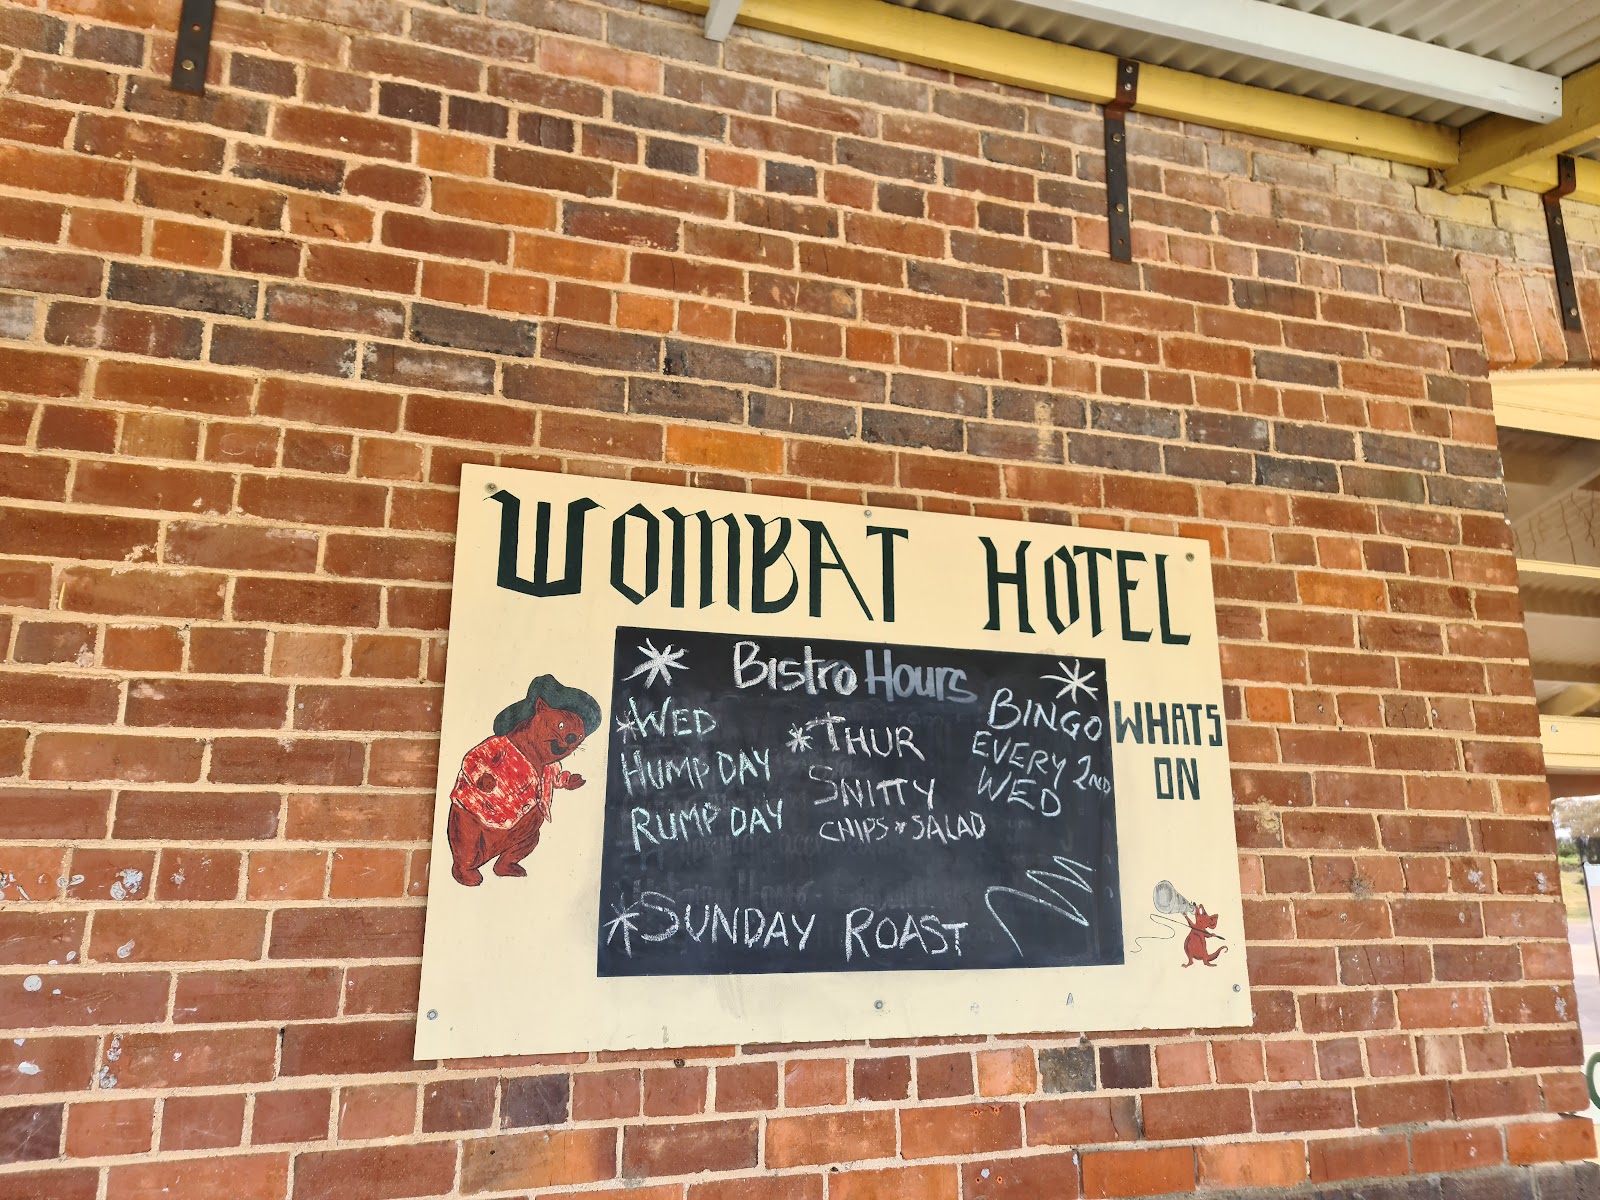 WOMBAT HOTEL
Bistro Hours
*WED
HUMP DAY
RUMP DAY
*THUR
SNITTY
CHIPS & SALAD
BINGO
EVERY 2ND
WED
*SUNDAY ROAST
WHATS
ON